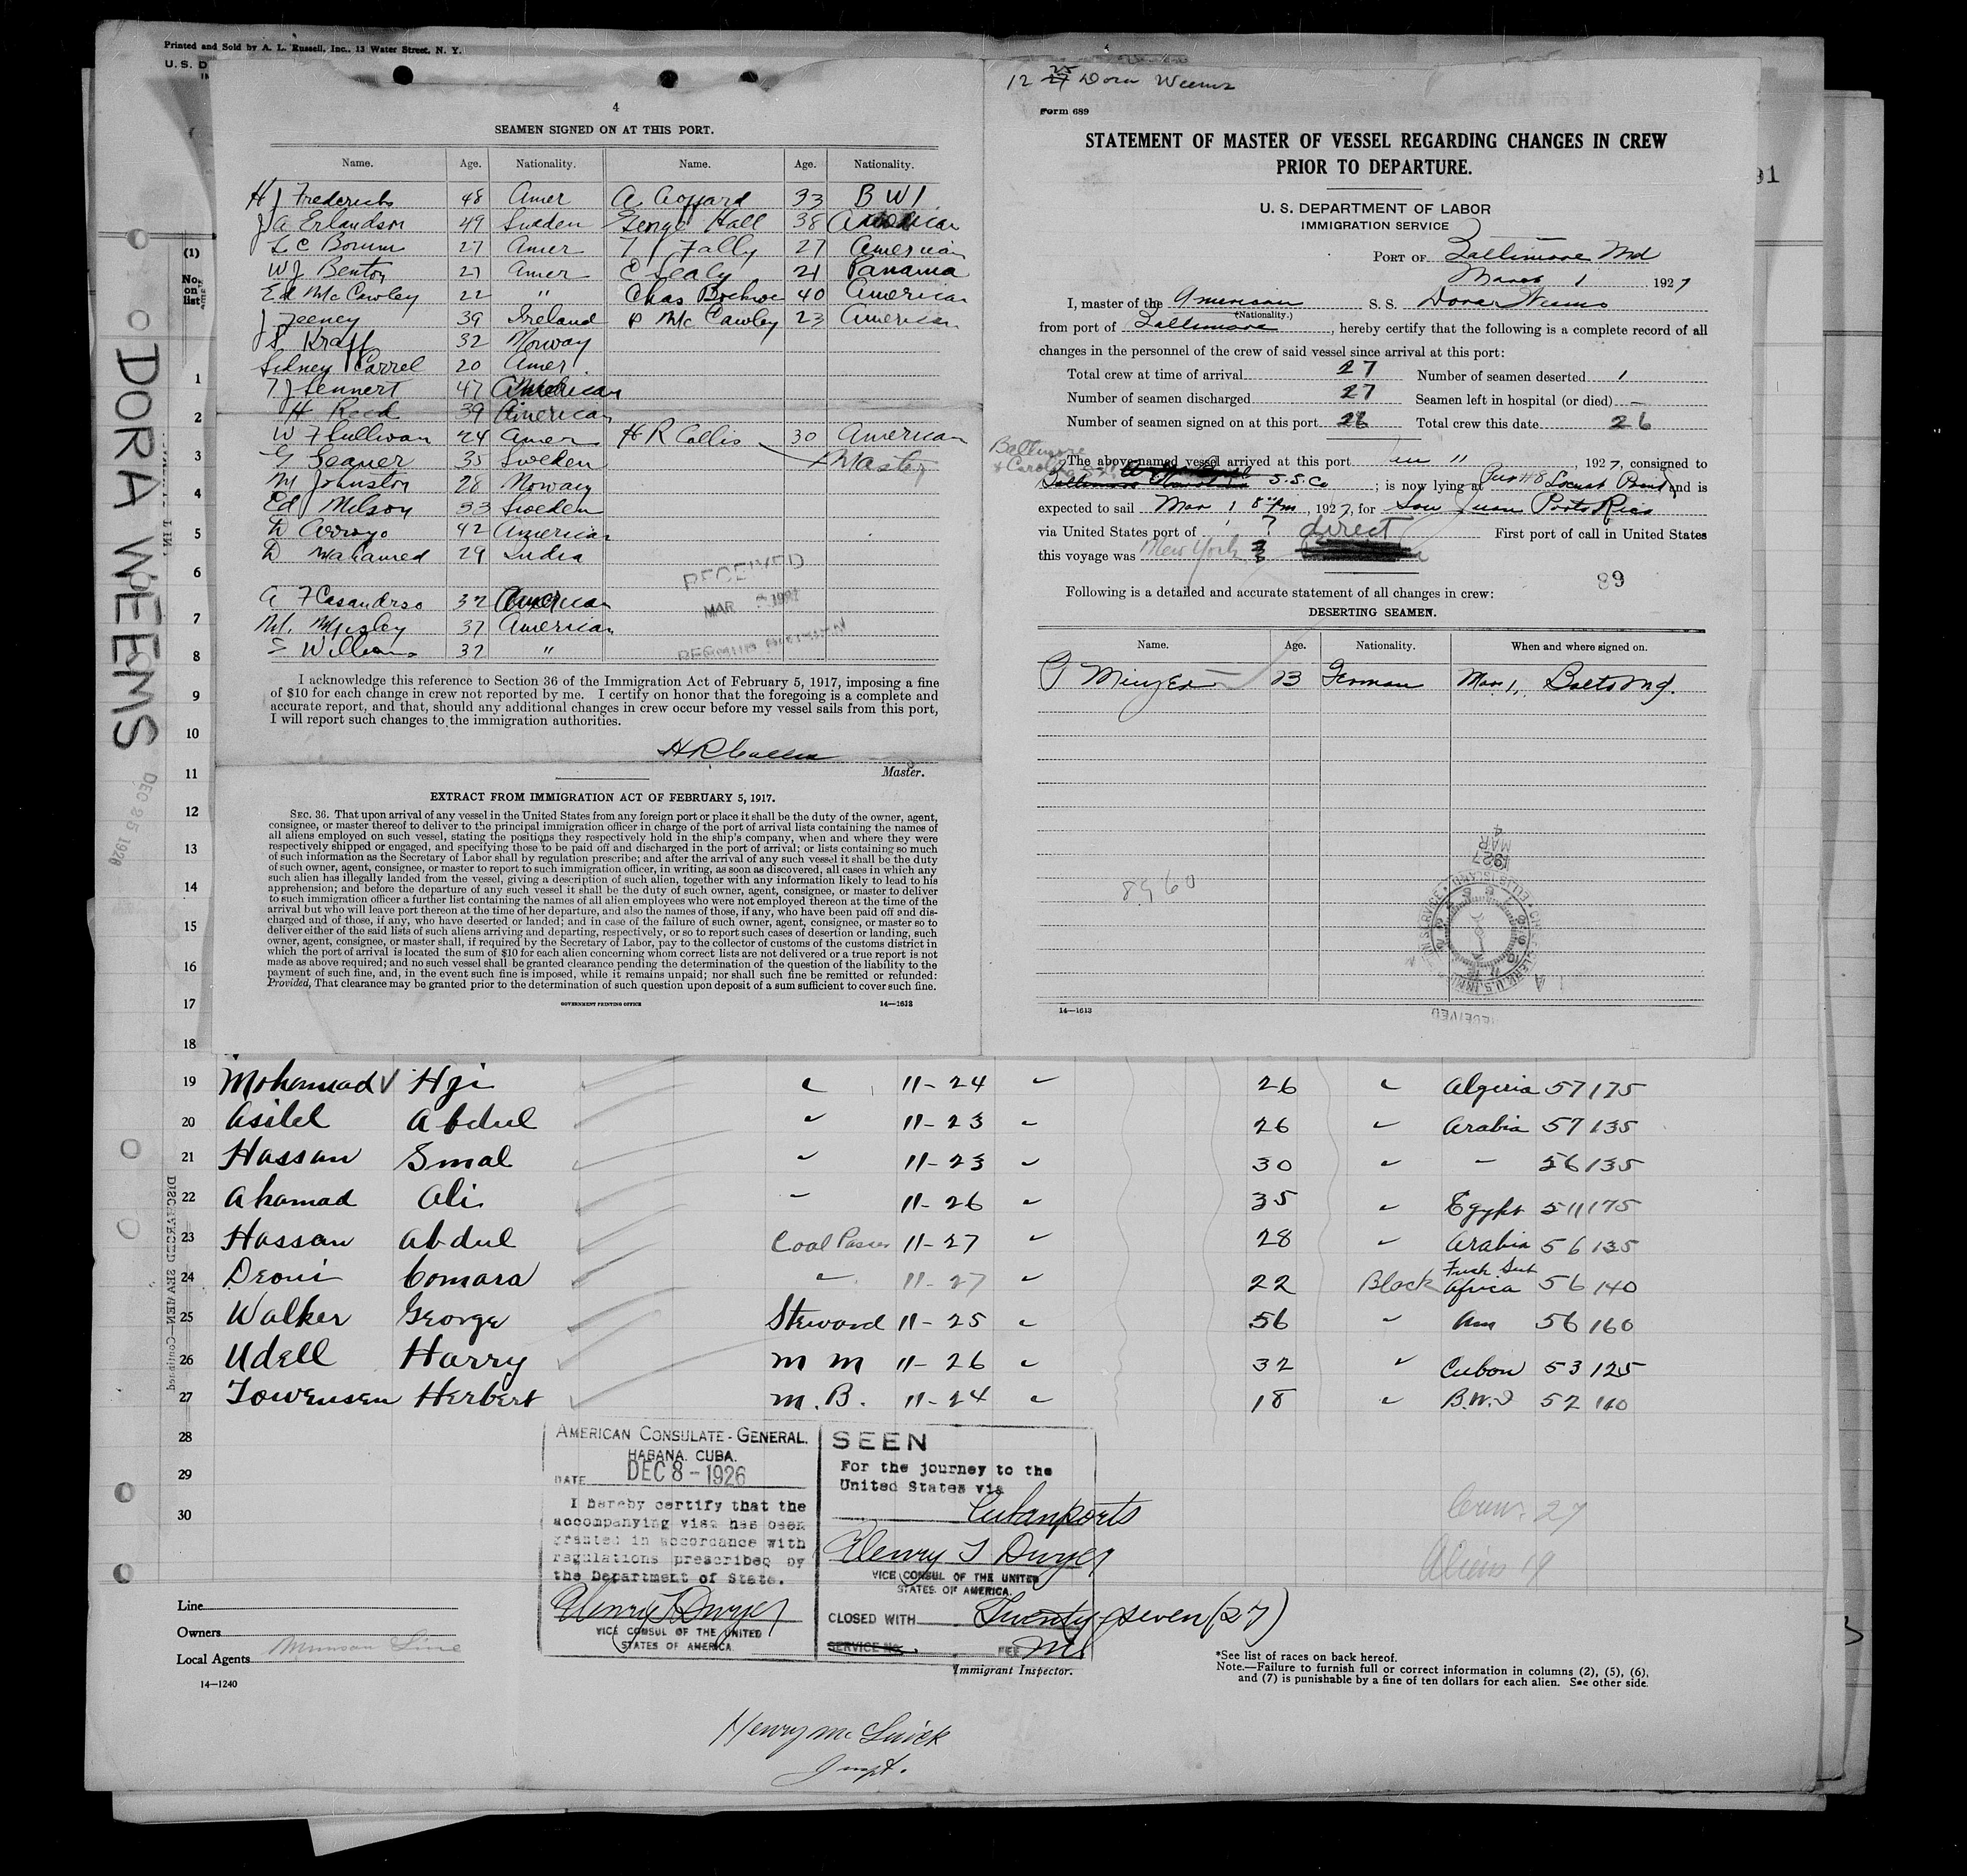 Printed and Sold by A. L. Russell, Inc., 13 Water Street, N. Y.
U. S. D
DORA WEEMS
DEC 25 1926
4
SEAMEN SIGNED ON AT THIS PORT.
Name. Age. Nationality. Name. Age. Nationality.
H J Fredericks 48 Amer A Goppard 33 B W I
J A Erlandson 49 Sweden George Hall 38 American
L C Bowm 27 Amer T J Fally 27 American
W J Benton 27 Amer C Sealy 21 Panama
Ed McCawley 22 " Chas 40 American
J Feeney 39 Ireland P McCawley 23 American
Kraff 32 Norway
Sidney Carrel 20 Amer.
T J Lennert 47 American
H Reed 39 American
W F Sullivan 24 Amer H R Callis 30 American
35 Sweden Master
M Johnston 28 Norway
Ed Nilson 33 Sweden
D Arroyo 42 American
D Mahamed 29 India
A F Casandrso 32 American
M. 37 American
E Williams 37 "
RECEIVED
MAR 1927
I acknowledge this reference to Section 36 of the Immigration Act of February 5, 1917, imposing a fine
of $10 for each change in crew not reported by me. I certify on honor that the foregoing is a complete and
accurate report, and that, should any additional changes in crew occur before my vessel sails from this port,
I will report such changes to the immigration authorities.
H R Callis
Master.
EXTRACT FROM IMMIGRATION ACT OF FEBRUARY 5, 1917.
SEC. 36. That upon arrival of any vessel in the United States from any foreign port or place it shall be the duty of the owner, agent,
consignee, or master thereof to deliver to the principal immigration officer in charge of the port of arrival lists containing the names of
all aliens employed on such vessel, stating the positions they respectively hold in the ship's company, when and where they were
respectively shipped or engaged, and specifying those to be paid off and discharged in the port of arrival; or lists containing so much
of such information as the Secretary of Labor shall by regulation prescribe; and after the arrival of any such vessel it shall be the duty
of such owner, agent, consignee, or master to report to such immigration officer, in writing, as soon as discovered, all cases in which any
such alien has illegally landed from the vessel, giving a description of such alien, together with any information likely to lead to his
apprehension; and before the departure of any such vessel it shall be the duty of such owner, agent, consignee, or master to deliver
to such immigration officer a further list containing the names of all alien employees who were not employed thereon at the time of the
arrival but who will leave port thereon at the time of her departure, and also the names of those, if any, who have been paid off and dis-
charged and of those, if any, who have deserted or landed; and in case of the failure of such owner, agent, consignee, or master so to
deliver either of the said lists of such aliens arriving and departing, respectively, or so to report such cases of desertion or landing, such
owner, agent, consignee, or master shall, if required by the Secretary of Labor, pay to the collector of customs of the customs district in
which the port of arrival is located the sum of $10 for each alien concerning whom correct lists are not delivered or a true report is not
made as above required; and no such vessel shall be granted clearance pending the determination of the question of the liability to the
payment of such fine, and, in the event such fine is imposed, while it remains unpaid; nor shall such fine be remitted or refunded:
Provided, That clearance may be granted prior to the determination of such question upon deposit of a sum sufficient to cover such fine.
GOVERNMENT PRINTING OFFICE 14—1613
12 25 Dora Weems
Form 689
STATEMENT OF MASTER OF VESSEL REGARDING CHANGES IN CREW
PRIOR TO DEPARTURE.
U. S. DEPARTMENT OF LABOR
IMMIGRATION SERVICE
PORT OF Baltimore Md
March 1, 1927
I, master of the American S. S. Dora Weems
(Nationality.)
from port of Baltimore, hereby certify that the following is a complete record of all
changes in the personnel of the crew of said vessel since arrival at this port:
Total crew at time of arrival 27 Number of seamen deserted 1
Number of seamen discharged 27 Seamen left in hospital (or died) —
Number of seamen signed on at this port 26 Total crew this date 26
The above-named vessel arrived at this port 11, 1927, consigned to
Baltimore & Carolina S.S. Co; is now lying at Pier #8 Locust Point and is
expected to sail Mar 1 8 pm, 1927, for San Juan Porto Rico
via United States port of ? direct First port of call in United States
this voyage was New York
89
Following is a detailed and accurate statement of all changes in crew:
DESERTING SEAMEN.
Name. Age. Nationality. When and where signed on.
G 23 German Mar 1, Balto Md.
8960
1927
MAR
4
RECEIVED
14—1613
91
(1)
No.
on
list
1
2
3
4
5
6
7
8
9
10
11
12
13
14
15
16
17
18
19 Mohamad Hji " 11-24 " 26 " Algeria 57 175
20 Asilel Abdul " 11-23 " 26 " Arabia 57 135
21 Hassan Smal " 11-23 " 30 " " 56 135
22 Ahamad Ali " 11-26 " 35 " Egypt 511 175
23 Hassan Abdul Coal Passer 11-27 " 28 " Arabia 56 135
24 Deoni Comara " 11-27 " 22 Black Frch Sub Africa 56 140
25 Walker George Steward 11-25 " 56 " Am 56 160
26 Udell Harry m m 11-26 " 32 " Cuban 53 125
27 Towensen Herbert m.B. 11-24 " 18 " B.W.I 52 110
28
29
30
DISCHARGED SEAMEN—Continued
Crew 27
Aliens 19
AMERICAN CONSULATE-GENERAL.
HABANA. CUBA.
DATE DEC 8-1926
I hereby certify that the
accompanying visa has been
granted in accordance with
regulations prescribed by
the Department of State.
Henry T Dwyer
VICE CONSUL OF THE UNITED
STATES OF AMERICA.
SEEN
For the journey to the
United States via
Cuban ports
Henry T Dwyer
VICE CONSUL OF THE UNITED
STATES OF AMERICA.
CLOSED WITH Twenty-seven (27)
SERVICE NO. FEE
Immigrant Inspector.
Line
Owners
Local Agents Munson Line
14—1240
*See list of races on back hereof.
Note.—Failure to furnish full or correct information in columns (2), (5), (6),
and (7) is punishable by a fine of ten dollars for each alien. See other side.
Henry Mc
Inspt.